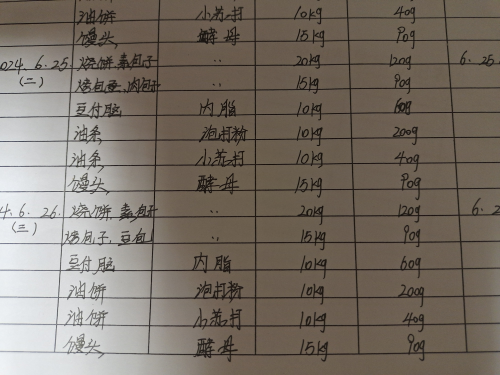 油饼 小苏打 10kg 40g
馒头 酵母 15kg 90g
024.6.25. 烧饼.素包子 〃 20kg 120g 6.25
(二) 烤包子、肉包子 〃 15kg 90g
豆付脑 内脂 10kg 60g
油条 泡打粉 10kg 200g
油条 小苏打 10kg 40g
馒头 酵母 15kg 90g
4.6.26. 烧饼.素包子 〃 20kg 120g 6.2
(三) 烤包子.豆包 〃 15kg 90g
豆付脑 内脂 10kg 60g
油饼 泡打粉 10kg 200g
油饼 小苏打 10kg 40g
馒头 酵母 15kg 90g